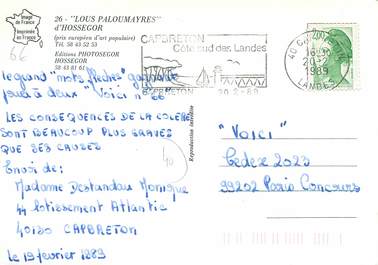 Image de France
Imprimée en France
26 - "LOUS PALOUMAYRES"
d'HOSSEGOR
(prix européen d'art populaire)
Tél. 58 43 52 53
Editions PHOTOSEGOR
HOSSEGOR
58 43 81 61
66
CAPBRETON
Côte sud des Landes
CAPBRETON
20-2-89
40 CAPBRETON
16H
20-2
1989
LANDES
Le grand "mots
jeu à deux "Voici n° 66"
LES CONSEQUENCES DE LA COLERE
SONT BEAUCOUP PLUS GRAVES
QUE SES CAUSES
Envoi de:
Madame Destandau Monique
44 lotissement Atlantic
40130 CAPBRETON
Le 19 février 1989
40
Reproduction interdite
"Voici"
Cedex 2023
99202 Paris Concours